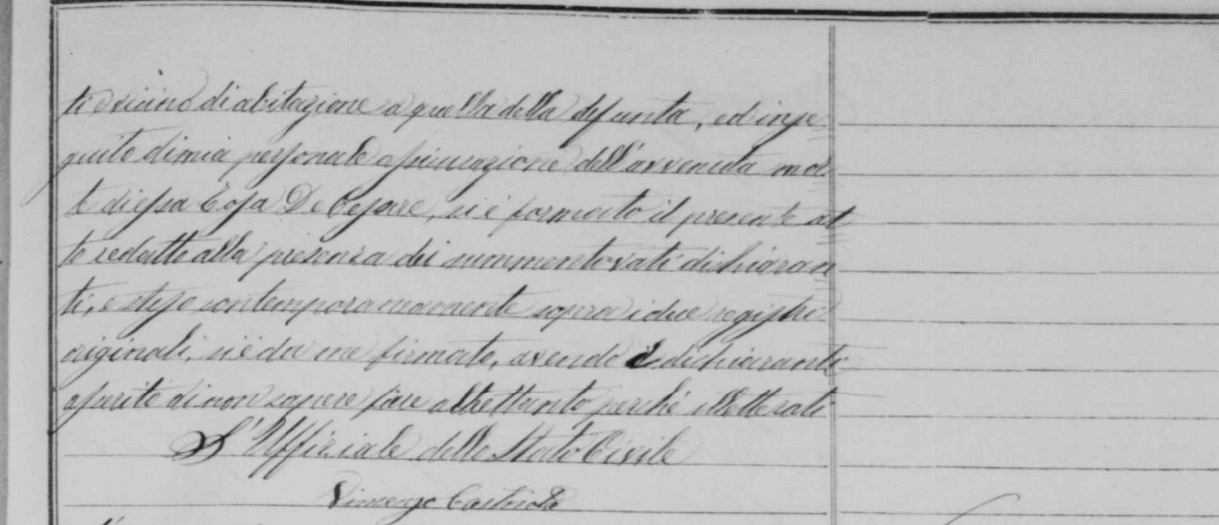 ti e vicino di abitazione a quella della defunta, ed in se
guito di mia personale assicurazione dell'avvenuta mor
te di essa De Cesare, si è formato il presente at
to redatto alla presenza dei summentovati dichiaran
ti, e steso contemporaneamente sopra i due registri
originali, si è da me firmato, avendo i dichiaranti
asserito di non sapere fare altrettanto perché illetterati
L'Uffiziale dello Stato Civile
Vincenzo